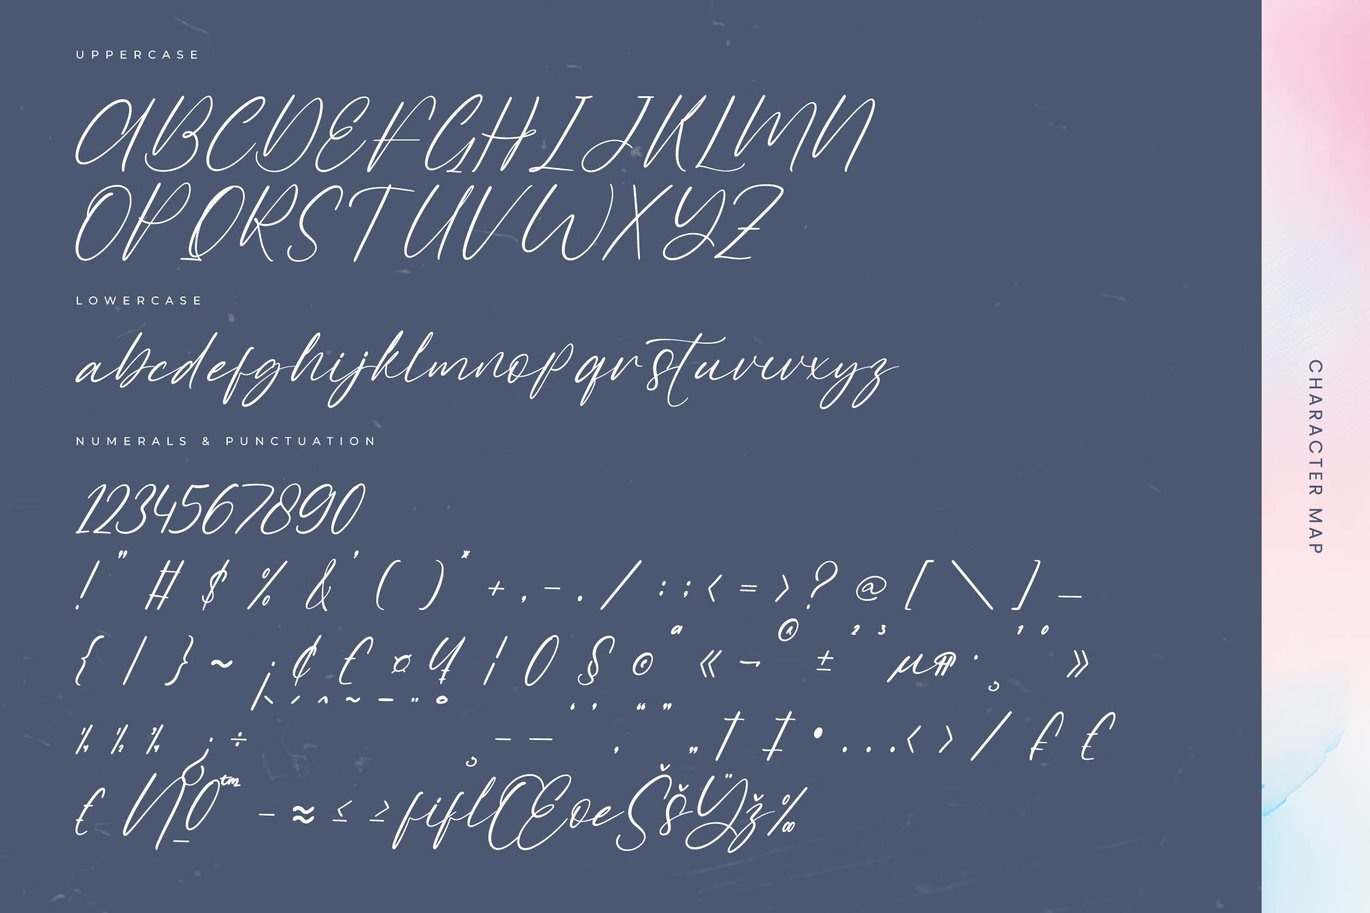 UPPERCASE
ABCDEFGHIJKLMN
OPQRSTUVWXYZ
LOWERCASE
abcdefghijklmnopqrstuvwxyz
NUMERALS & PUNCTUATION
1234567890
! " # $ % & ' ( ) * + , - . / : ; < = > ? @ [ \ ] _
{ | } ~ ¡ ¢ £ ¤ ¥ ¦ 0 § © ª « ¬ ® ± ² ³ µ ¶ · ¸ ¹ º »
¼ ½ ¾ ¿ ÷ ` ´ ^ ~ ¯ ¨ ° ¸ – — ‘ ’ ‚ “ ” „ † ‡ • . ... ‹ › ⁄ ₤ €
€ № ™ − ≈ ≤ ≥ fi fl Œ œ Š š Ÿ ž ‰
CHARACTER MAP